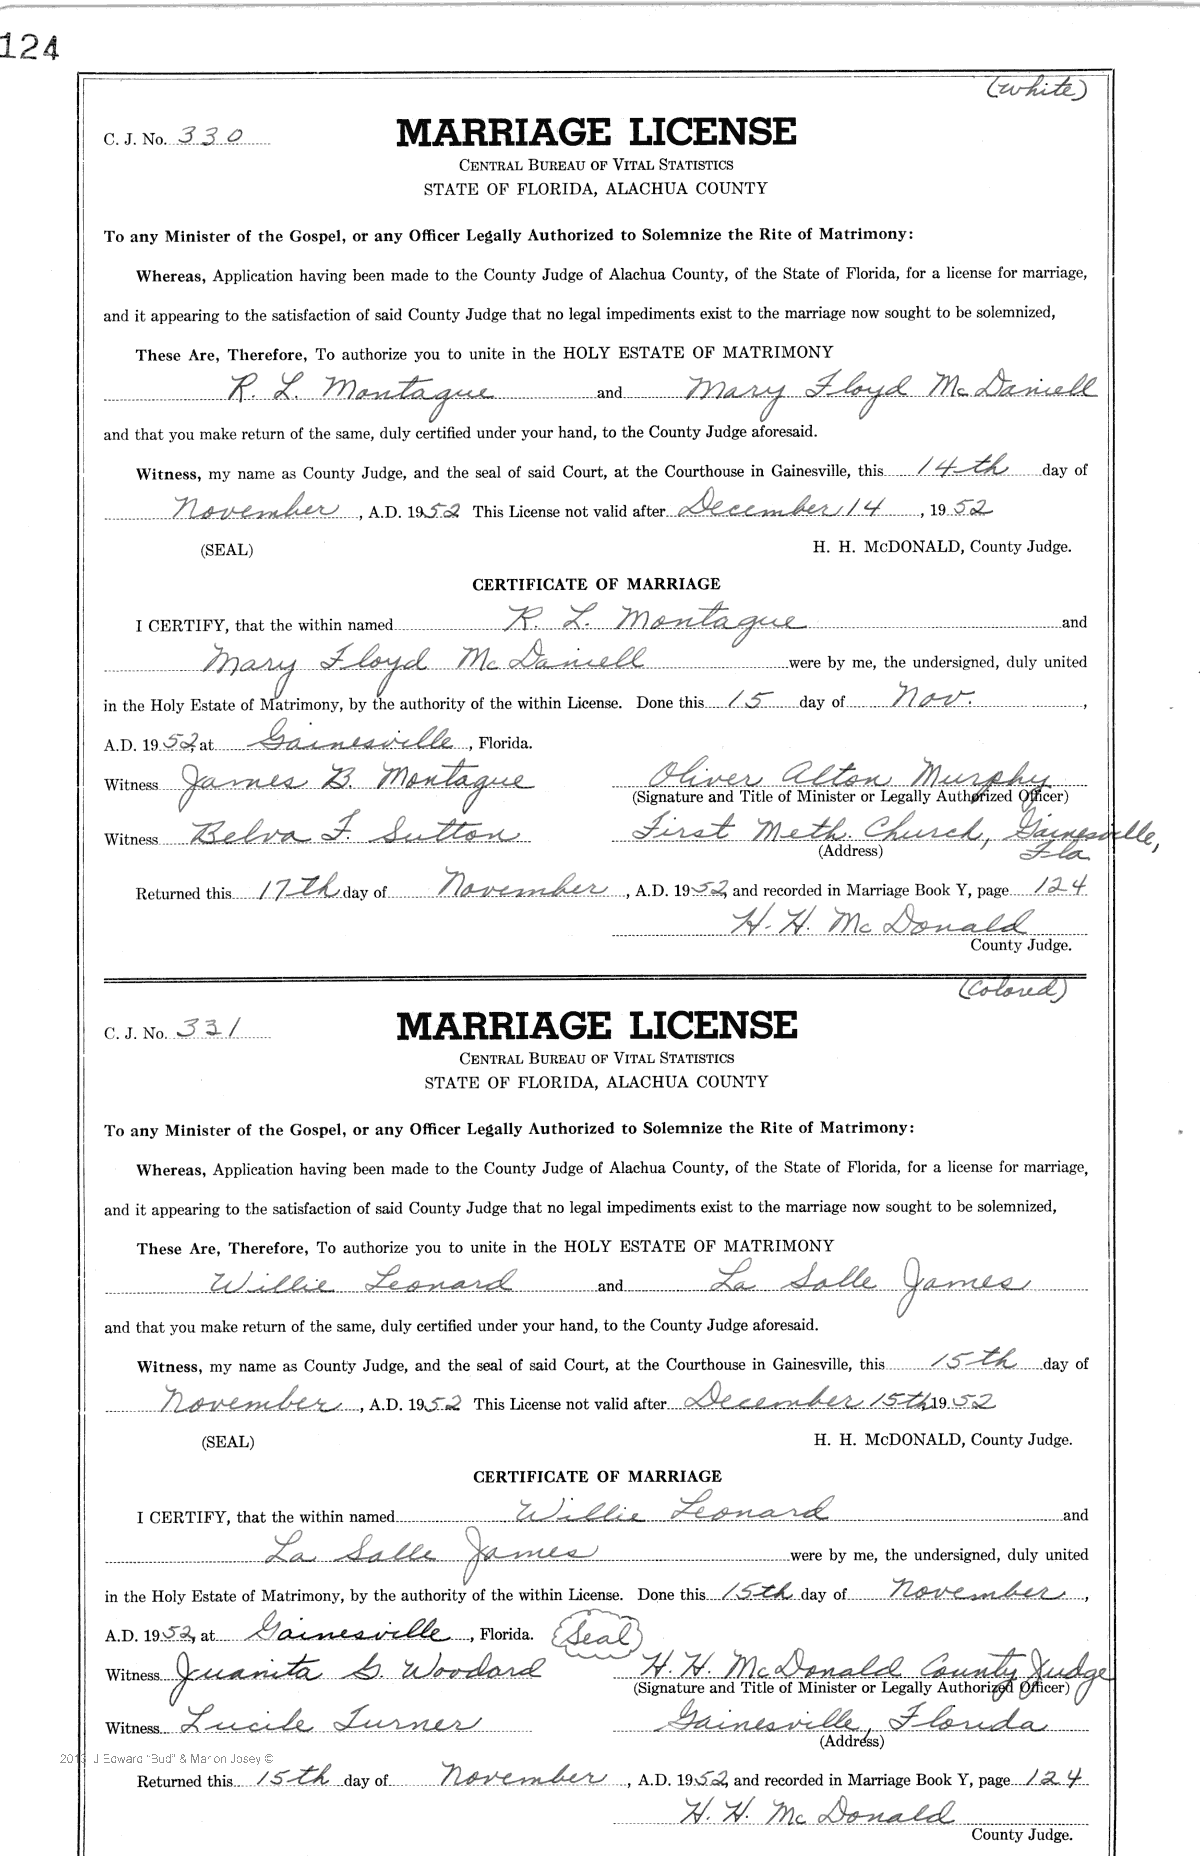 124
(white)
C. J. No. 330
MARRIAGE LICENSE
CENTRAL BUREAU OF VITAL STATISTICS
STATE OF FLORIDA, ALACHUA COUNTY
To any Minister of the Gospel, or any Officer Legally Authorized to Solemnize the Rite of Matrimony:
Whereas, Application having been made to the County Judge of Alachua County, of the State of Florida, for a license for marriage,
and it appearing to the satisfaction of said County Judge that no legal impediments exist to the marriage now sought to be solemnized,
These Are, Therefore, To authorize you to unite in the HOLY ESTATE OF MATRIMONY
R. L. Montague and Mary Floyd McDaniell
and that you make return of the same, duly certified under your hand, to the County Judge aforesaid.
Witness, my name as County Judge, and the seal of said Court, at the Courthouse in Gainesville, this 14th day of
November, A.D. 1952 This License not valid after December 14, 1952
(SEAL) H. H. McDONALD, County Judge.
CERTIFICATE OF MARRIAGE
I CERTIFY, that the within named R. L. Montague and
Mary Floyd McDaniell were by me, the undersigned, duly united
in the Holy Estate of Matrimony, by the authority of the within License. Done this 15 day of Nov.,
A.D. 1952, at Gainesville, Florida.
Witness James B. Montague Oliver Alton Murphy
(Signature and Title of Minister or Legally Authorized Officer)
Witness Belva F. Sutton First Meth. Church, Gainesville,
(Address) Fla
Returned this 17th day of November, A.D. 1952, and recorded in Marriage Book Y, page 124
H. H. McDonald
County Judge.
(Colored)
C. J. No. 331
MARRIAGE LICENSE
CENTRAL BUREAU OF VITAL STATISTICS
STATE OF FLORIDA, ALACHUA COUNTY
To any Minister of the Gospel, or any Officer Legally Authorized to Solemnize the Rite of Matrimony:
Whereas, Application having been made to the County Judge of Alachua County, of the State of Florida, for a license for marriage,
and it appearing to the satisfaction of said County Judge that no legal impediments exist to the marriage now sought to be solemnized,
These Are, Therefore, To authorize you to unite in the HOLY ESTATE OF MATRIMONY
Willie Leonard and La Salle James
and that you make return of the same, duly certified under your hand, to the County Judge aforesaid.
Witness, my name as County Judge, and the seal of said Court, at the Courthouse in Gainesville, this 15th day of
November, A.D. 1952 This License not valid after December 15th 1952
(SEAL) H. H. McDONALD, County Judge.
CERTIFICATE OF MARRIAGE
I CERTIFY, that the within named Willie Leonard and
La Salle James were by me, the undersigned, duly united
in the Holy Estate of Matrimony, by the authority of the within License. Done this 15th day of November,
A.D. 1952, at Gainesville, Florida. (Seal)
Witness Juanita G. Woodard H. H. McDonald County Judge
(Signature and Title of Minister or Legally Authorized Officer)
Witness Lucile Turner Gainesville, Florida
(Address)
2013 J Edward "Bud" & Marion Josey ©
Returned this 15th day of November, A.D. 1952, and recorded in Marriage Book Y, page 124
H. H. McDonald
County Judge.